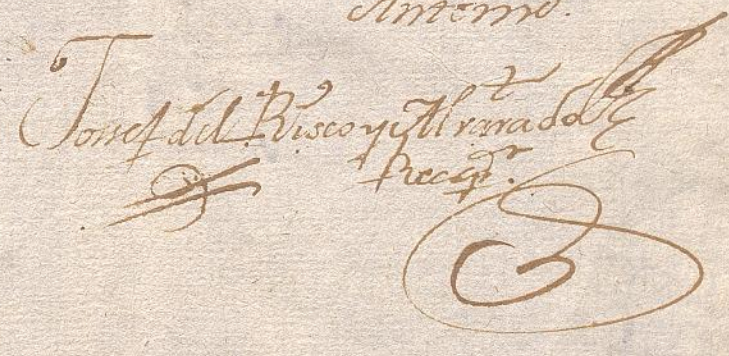 Antemo.
Joseph del Risco y Alvarado
Recepr.